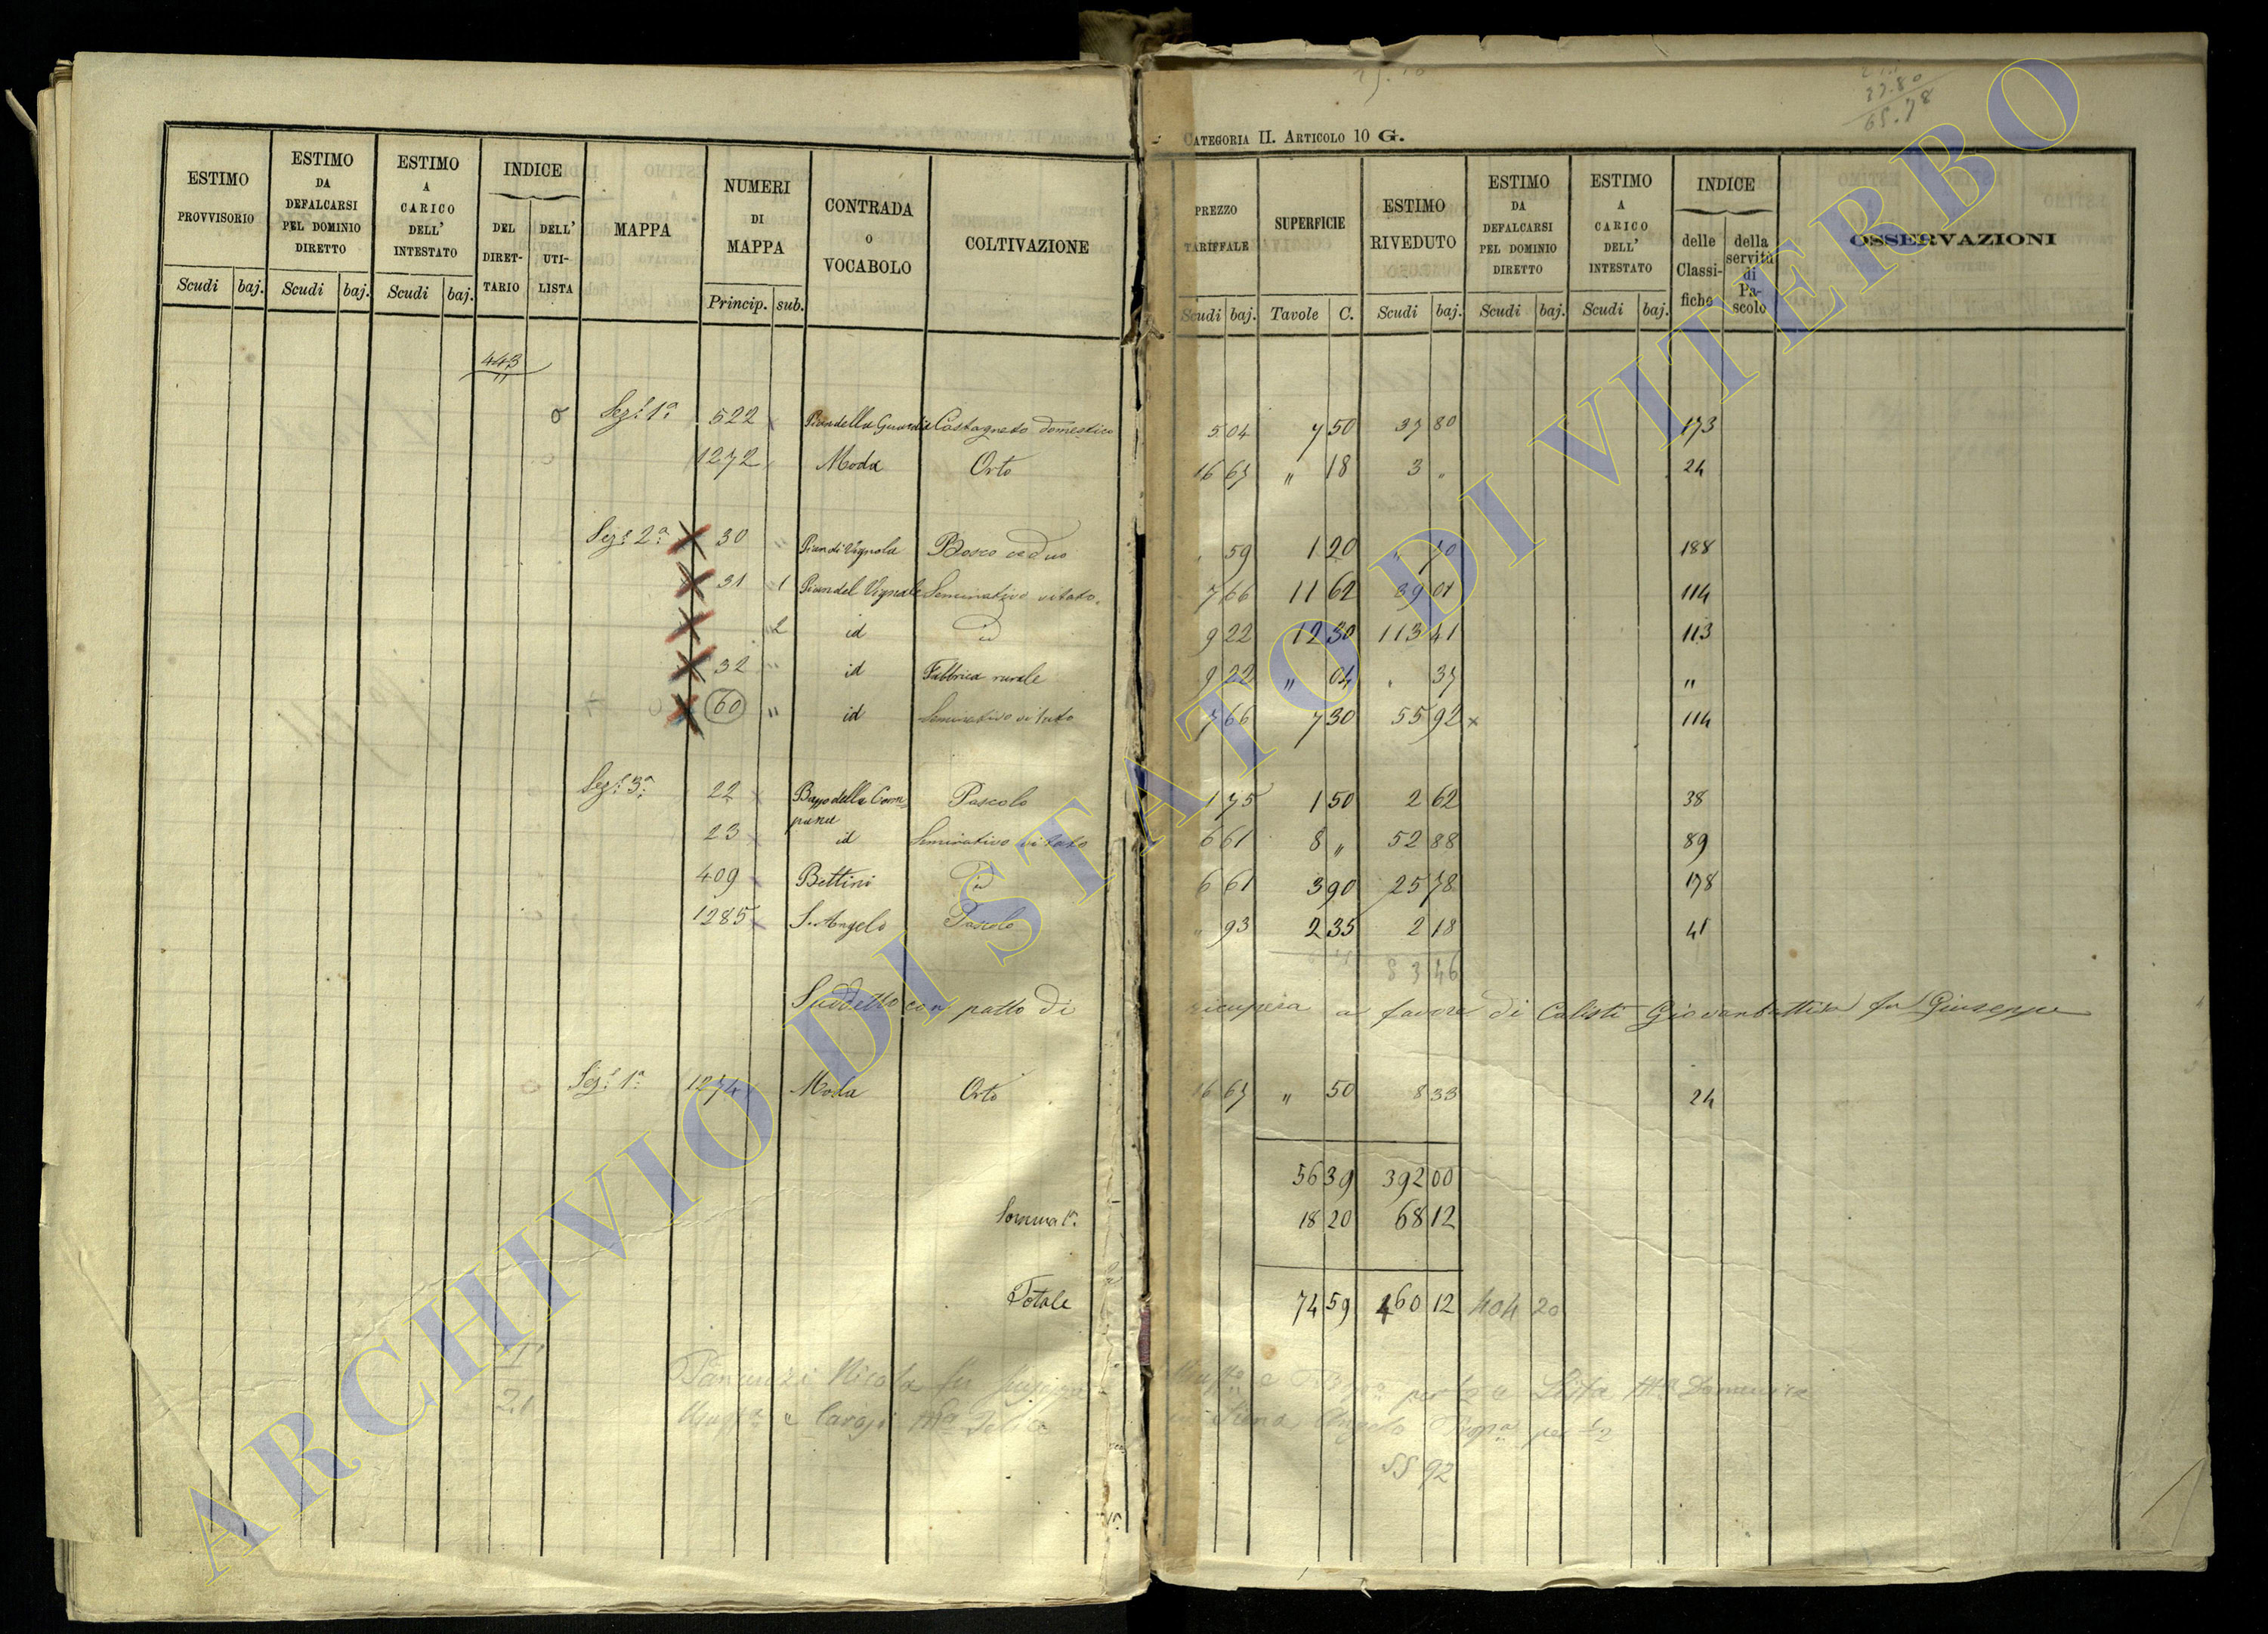 CATEGORIA II. ARTICOLO 10 G.
37.80
65.78
ESTIMO PROVVISORIO Scudi baj. ESTIMO DA DEFALCARSI PEL DOMINIO DIRETTO Scudi baj. ESTIMO A CARICO DELL' INTESTATO Scudi baj. INDICE DEL DIRETTARIO DELL' UTILISTA MAPPA NUMERI DI MAPPA Princip. sub. CONTRADA O VOCABOLO COLTIVAZIONE PREZZO TARIFFALE Scudi baj. SUPERFICIE Tavole C. ESTIMO RIVEDUTO Scudi baj. ESTIMO DA DEFALCARSI PEL DOMINIO DIRETTO Scudi baj. ESTIMO A CARICO DELL' INTESTATO Scudi baj. INDICE delle Classifiche della servitù di Pascolo OSSERVAZIONI
443
Sez.e 1a 522 Pian della Guardia Castagneto domestico 5 04 7 50 37 80 173
1272 Moda Orto 16 67 " 18 3 " 24
Sez.e 2a 30 " Pian di Vignola Bosco ceduo 59 1 20 " 70 188
31 1 Pian del Vignale Seminativo vitato 7 66 11 62 89 01 114
2 id id 9 22 12 30 113 41 113
32 " id Fabbrica rurale 9 22 " 04 " 37 "
60 " id Seminativo vitato 7 66 7 30 55 92 x 114
Sez.e 3a 22 della Campana Pascolo 1 75 1 50 2 62 38
23 id Seminativo vitato 6 61 8 " 52 88 89
409 Bettini id 6 61 3 90 25 78 178
1285 S. Angelo Pascolo " 93 2 35 2 18 41
83 46
Suddetto con patto di ricupera a favore di Calisti Giovanbattista fu Giuseppe
Sez.e 1a 1274 Moda Orto 16 67 " 50 8 33 24
56 39 392 00
Somma 1a 18 20 68 12
Totale 74 59 460 12 404 20
21
Nicola fu per 1/2 a Lista Ma Domenica
e Ma Angelo per 1/2
55 92
ARCHIVIO DI STATO DI VITERBO